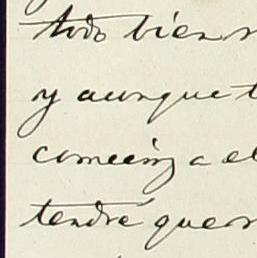 todo bien
y aunque t
a el
tendré que